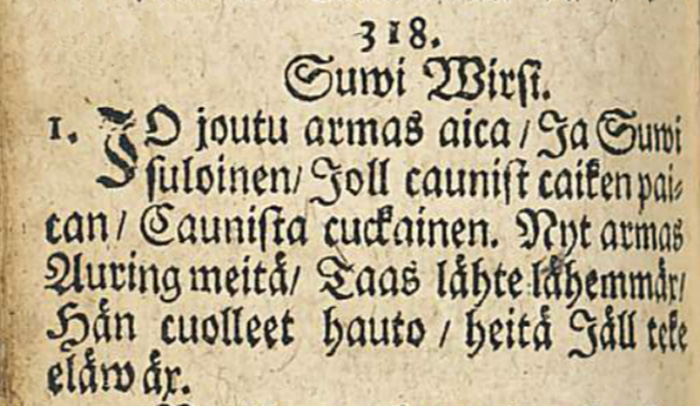 318.
Suwi Wirsi.
1. JO joutu armas aica / Ja Suwi
suloinen / Joll caunist caiken pai-
can / Caunista cuckainen. Nyt armas
Auring meitä / Taas lähte lähemmäx /
Hän cuolleet hauto / heitä Jäll teke
eläwäx.